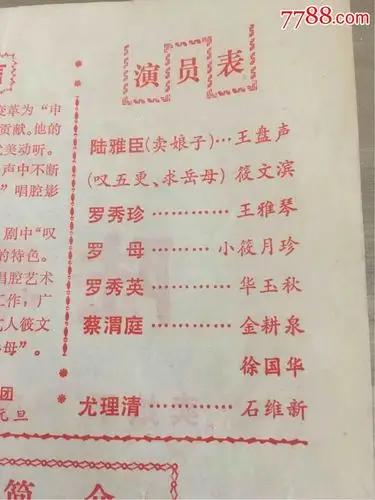 7788.com
演员表
陆雅臣(卖娘子)…王盘声
(叹五更、求岳母)筱文滨
罗秀珍…………王雅琴
罗 母………小筱月珍
罗秀英…………华玉秋
蔡渭庭…………金耕泉
徐国华
尤理清…………石维新
变革为“申
贡献。他的
美动听。
声中不断
”唱腔影
剧中“叹
的特色。
唱腔艺术
工作,广
艺人筱文
母”。
团
元旦
简介